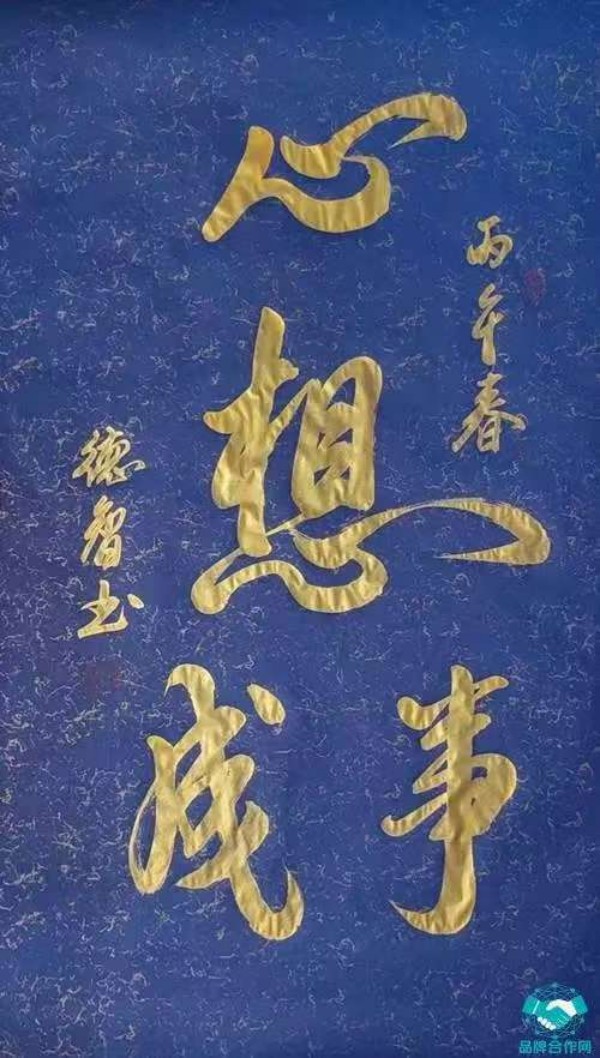 丙午春
心
想
事成
德智书
品牌合作网